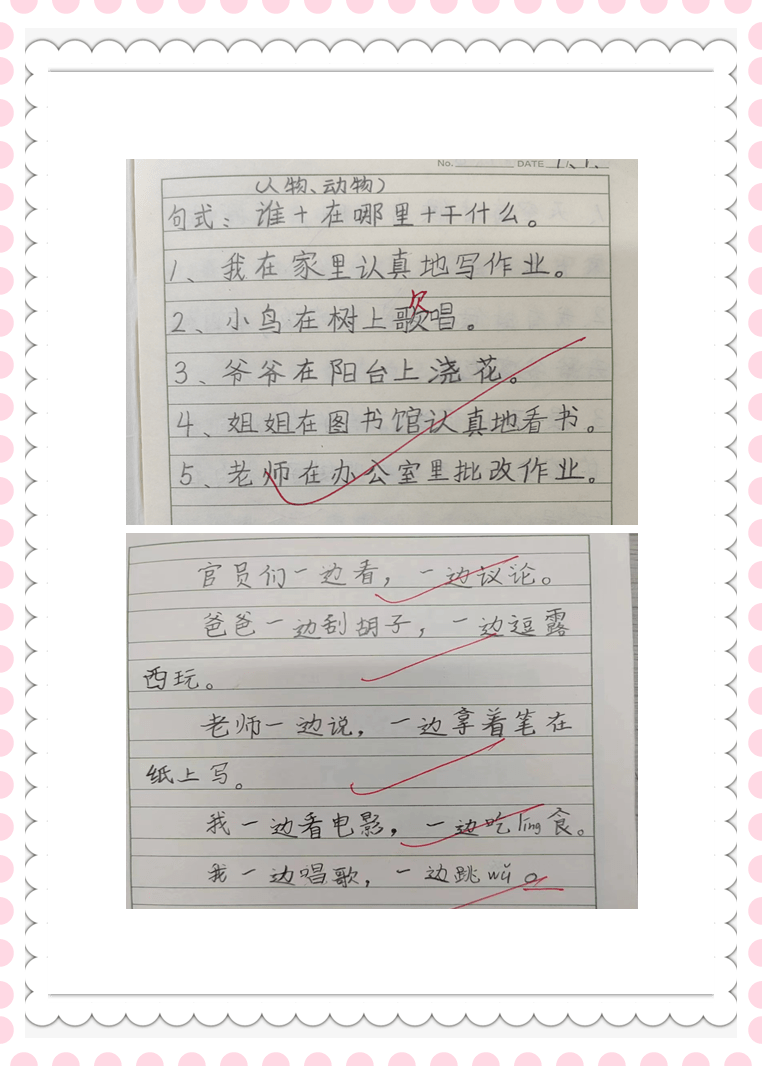 No. DATE 1.1.
(人物、动物)
句式：谁+在哪里+干什么。
1、我在家里认真地写作业。
欠
2、小鸟在树上歌唱。
3、爷爷在阳台上浇花。
4、姐姐在图书馆认真地看书。
5、老师在办公室里批改作业。
官员们一边看，一边议论。
爸爸一边刮胡子，一边逗露
西玩。
老师一边说，一边拿着笔在
纸上写。
我一边看电影，一边吃líng食。
我一边唱歌，一边跳wǔ。